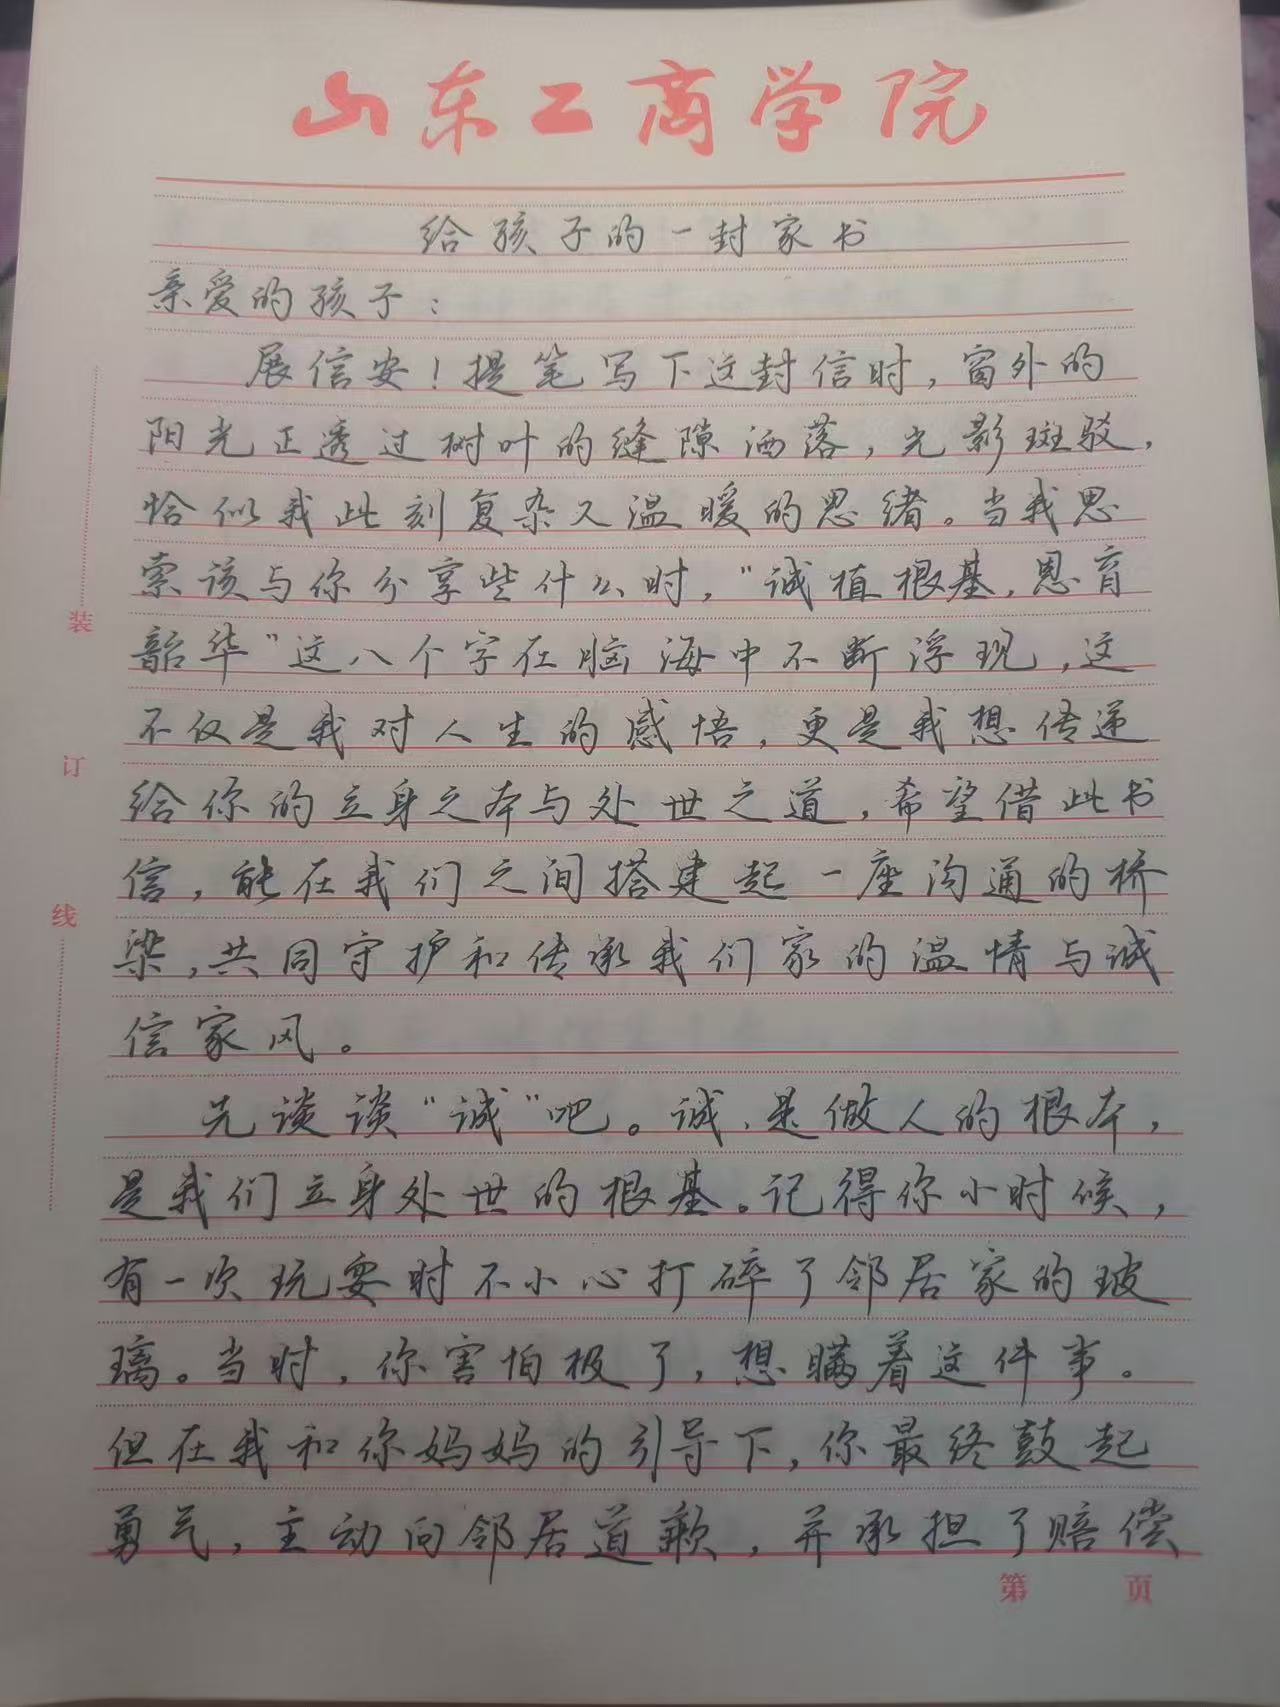 山东工商学院
给孩子的一封家书
亲爱的孩子：
展信安！提笔写下这封信时，窗外的
阳光正透过树叶的缝隙洒落，光影斑驳，
恰似我此刻复杂又温暖的思绪。当我思
索该与你分享些什么时，“诚植根基，恩育
韶华”这八个字在脑海中不断浮现，这
不仅是我对人生的感悟，更是我想传递
给你的立身之本与处世之道，希望借此书
信，能在我们之间搭建起一座沟通的桥
梁，共同守护和传承我们家的温情与诚
信家风。
先谈谈“诚”吧。诚，是做人的根本，
是我们立身处世的根基。记得你小时候，
有一次玩耍时不小心打碎了邻居家的玻
璃。当时，你害怕极了，想瞒着这件事。
但在我和你妈妈的引导下，你最终鼓起
勇气，主动向邻居道歉，并承担了赔偿
装
订
线
第 页